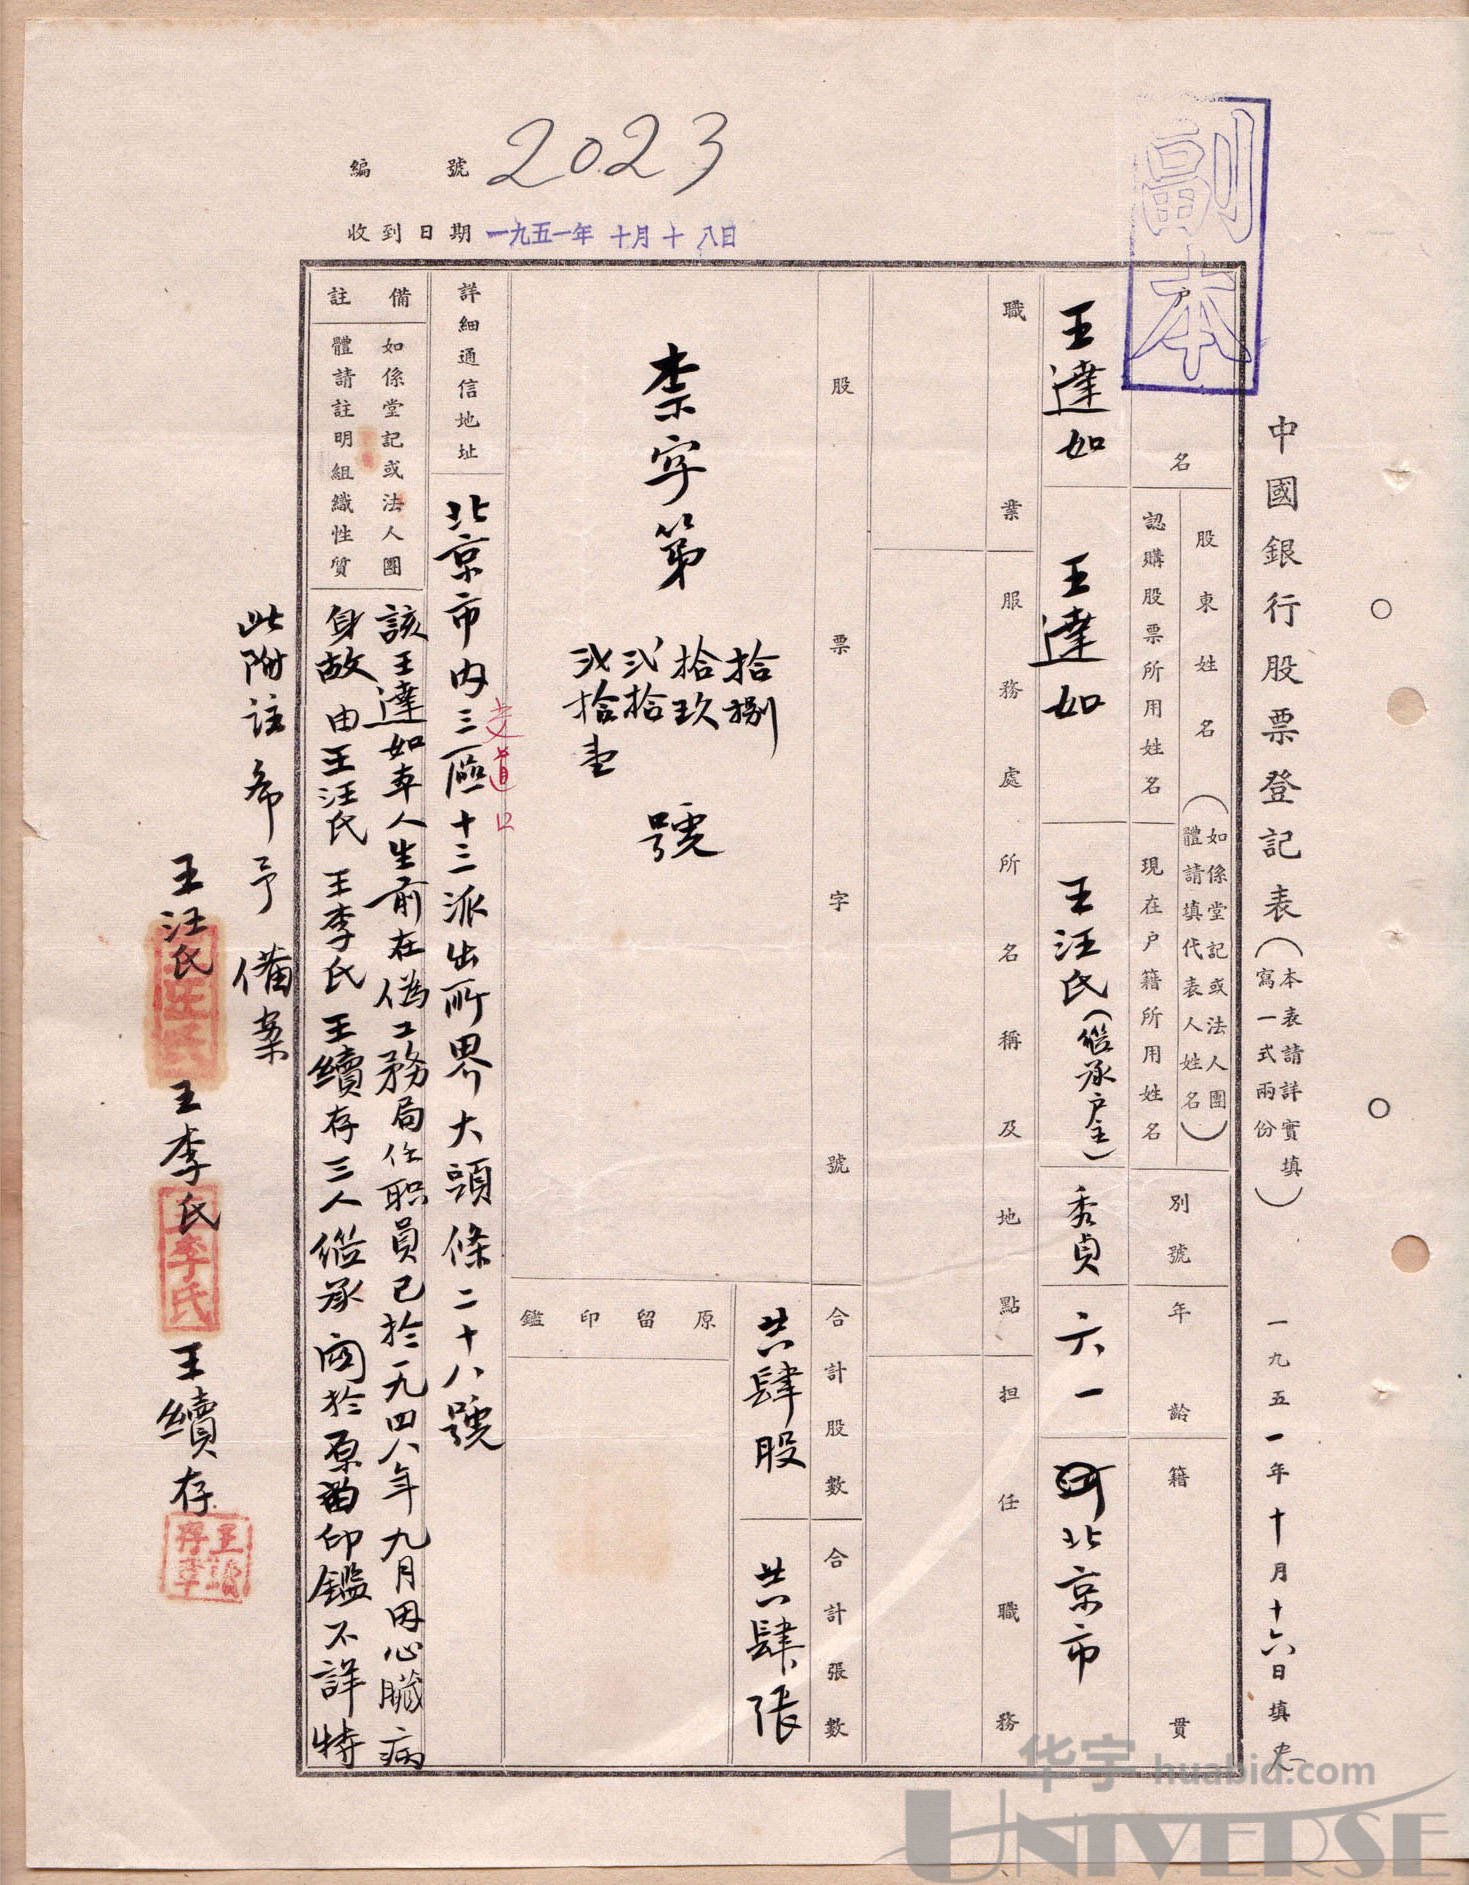 副本
編號 2023
收到日期 一九五一年 十月十八日
中國銀行股票登記表(本表請詳實填寫一式兩份) 一九五一年十月十六日填
户名
王達如
股東姓名(如係堂記或法人團體請填代表人姓名)
認購股票所用姓名
王達如
現在户籍所用姓名
王汪氏(繼承户主)
別號
秀貞
年齡
六一
籍貫
北京市
職業
服務處所名稱及地點
担任職務
股票字號
柰字第
拾捌
拾玖
弍拾
弍拾壹
號
合計股數
共肆股
合計張數
共肆張
原留印鑑
詳細通信地址
北京市内三區十三派出所界大頭條二十八號
交道口
備註
如係堂記或法人團體請註明組織性質
該王達如本人生前在偽工務局任职員已於一九四八年九月因心臟病
身故由王汪氏王李氏王續存三人繼承関於原留印鑑不詳特
此附註希予備案
王汪氏 王李氏 王續存
王李氏
王續存章
华宇 huabid.com
UNIVERSE